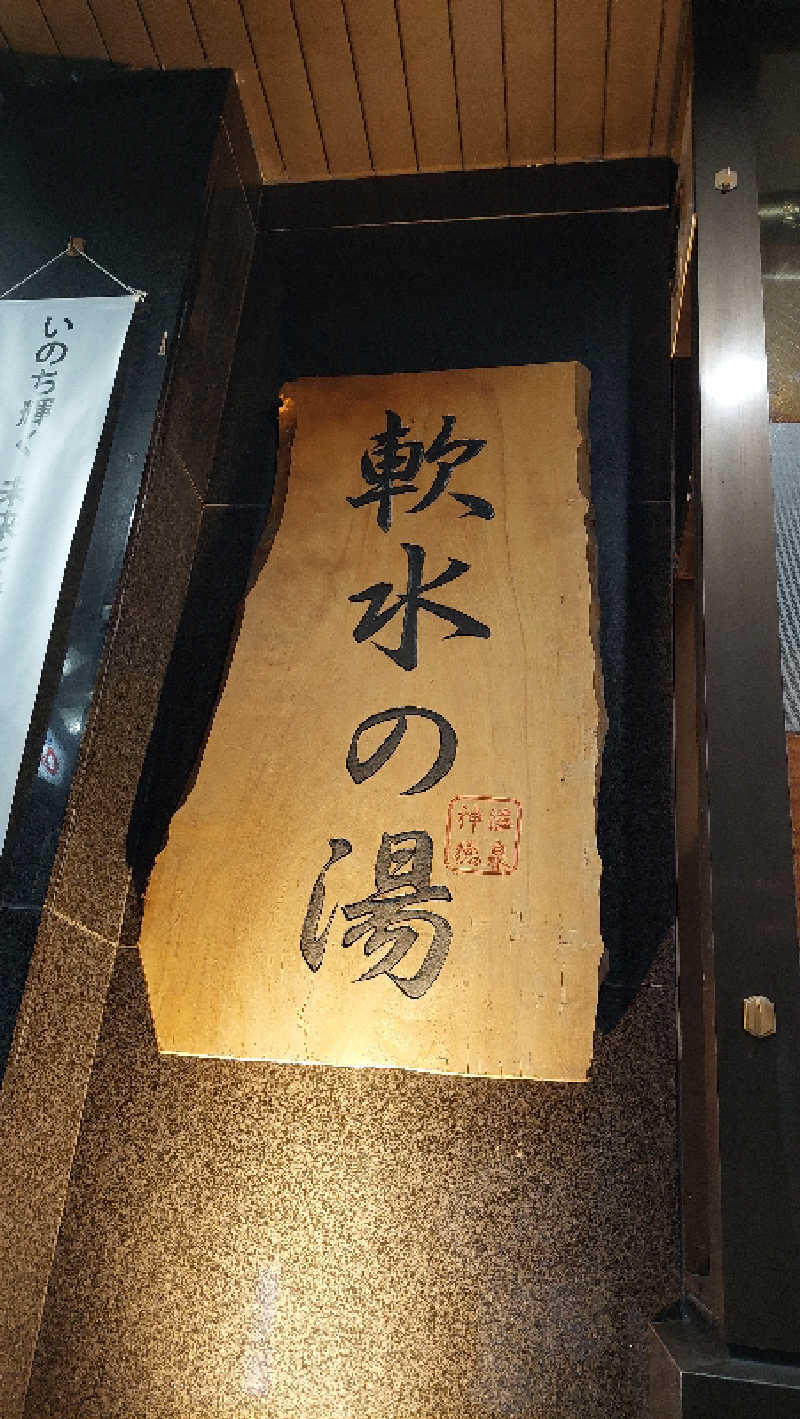 軟水の湯
神徳
温泉
いのち輝く 未来